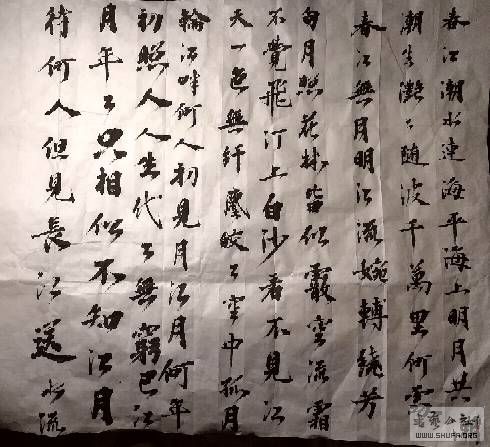 春江潮水連海平海上明月共
潮生灩々随波千萬里何處
春江無月明江流婉轉繞芳
甸月照花林皆似霰空流霜
不覺飛汀上白沙看不見江
天一色無纤塵皎々空中孤月
輪江畔何人初見月江月何年
初照人人生代々無窮已江
月年々只相似不知江月
待何人但見長江送水流